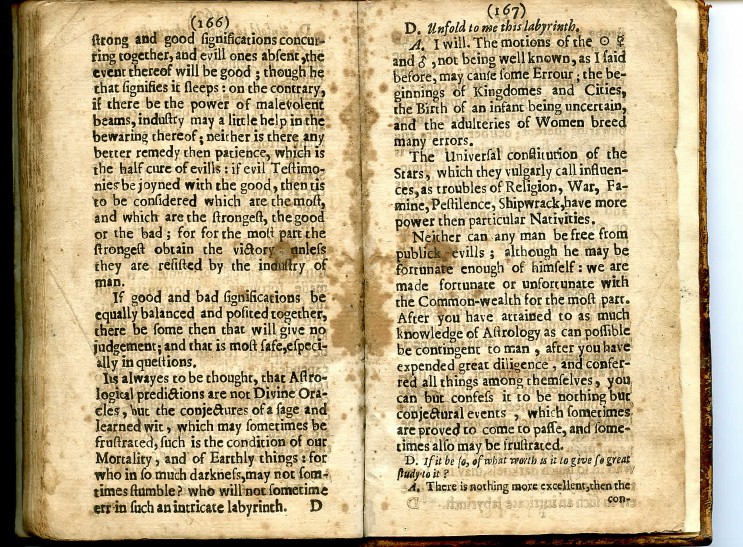 (166)
ſtrong and good ſignifications concur-
ring together, and evill ones abſent, the
event thereof will be good ; though he
that ſignifies it ſleeps : on the contrary,
if there be the power of malevolent
beams, induſtry may a little help in the
bewaring thereof; neither is there any
better remedy then patience, which is
the half cure of evills : if evil Teſtimo-
nies be joyned with the good, then tis
to be conſidered which are the moſt,
and which are the ſtrongeſt, the good
or the bad ; for for the moſt part the
ſtrongeſt obtain the victory unleſs
they are reſiſted by the induſtry of
man.
If good and bad ſignifications be
equally balanced and poſited together,
there be ſome then that will give no
judgement; and that is moſt ſafe, eſpeci-
ally in queſtions.
Its alwayes to be thought, that Aſtro-
logical predictions are not Divine Ora-
cles, but the conjectures of a ſage and
learned wit, which may ſometimes be
fruſtrated, ſuch is the condition of our
Mortality, and of Earthly things : for
who in ſo much darkneſs, may not ſom-
times ſtumble? who will not ſometime
err in ſuch an intricate labyrinth. D
(167)
D. Unfold to me this labyrinth.
A. I will. The motions of the ☉ ☿
and ♂, not being well known, as I ſaid
before, may cauſe ſome Errour; the be-
ginnings of Kingdomes and Cities,
the Birth of an infant being uncertain,
and the adulteries of Women breed
many errors.
The Univerſal conſtitution of the
Stars, which they vulgarly call influen-
ces, as troubles of Religion, War, Fa-
mine, Peſtilence, Shipwrack, have more
power then particular Nativities.
Neither can any man be free from
publick evills ; although he may be
fortunate enough of himſelf : we are
made fortunate or unfortunate with
the Common-wealth for the moſt part.
After you have attained to as much
knowledge of Aſtrology as can poſſible
be contingent to man , after you have
expended great diligence , and confer-
red all things among themſelves, you
can but confeſs it to be nothing but
conjectural events , which ſometimes
are proved to come to paſſe, and ſome-
times alſo may be fruſtrated.
D. If it be ſo, of what worth is it to give ſo great
ſtudy to it ?
A. There is nothing more excellent, then the
con-